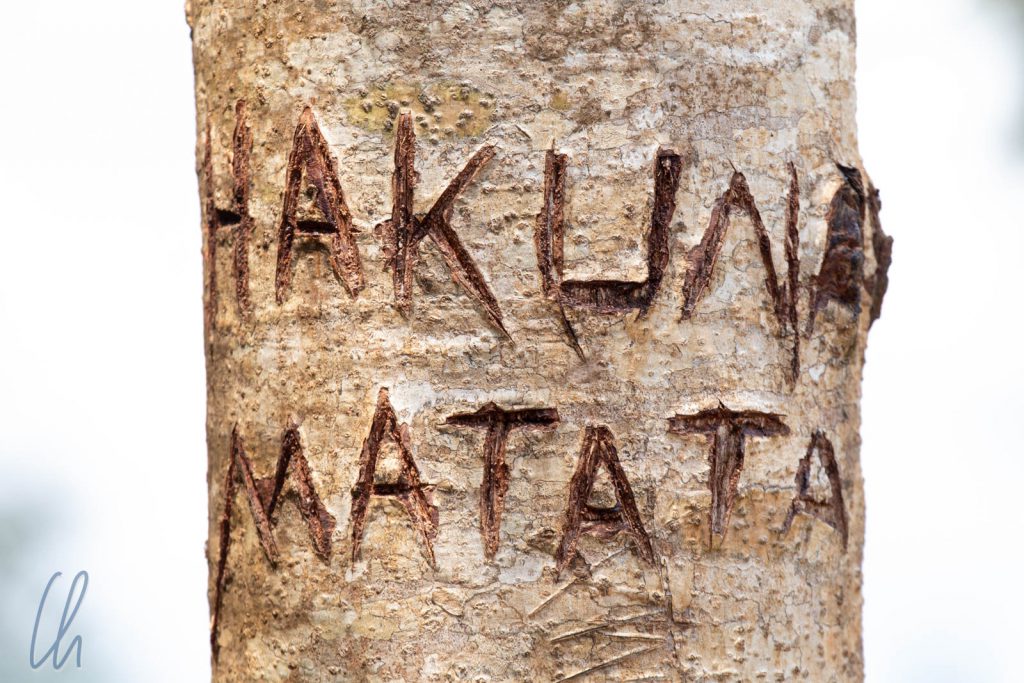 HAKUNA
MATATA
ch